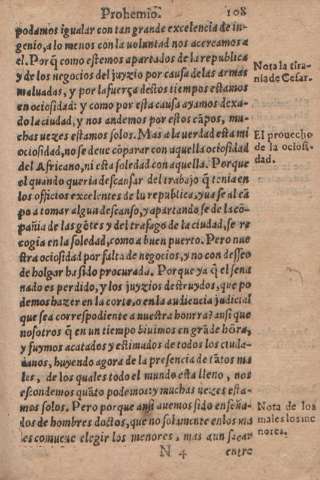 Prohemio. 108
podamos igualar con tan grande excelencia de in-
genio, a lo menos con la voluntad nos acercamos a
el. Por q̃ como estemos apartados de la republica
y de los negocios del juyzio por causa de las armas
maluadas, y por la fuerça destos tiempos estamos
en ociosidad: y como por esta causa ayamos dexa-
do la ciudad, y nos andemos por estos cãpos, mu-
chas vezes estamos solos. Mas a la verdad esta mi
ociosidad, no se deue cõparar con aquella ociosidad
del Africano, ni esta soledad con aquella. Porque
el quando queria descansar del trabajo q̃ tenia en
los officios excelentes de la republica, yua se al cã
po a tomar algun descanso, y apartando se de la cõ-
pañia de las gẽtes y del trafago de la ciudad, se re
cogia en la soledad, como a buen puerto. Pero nue
stra ociosidad por falta de negocios, y no con desseo
de holgar ha sido procurada. Porque ya q̃ el sena
nado es perdido, y los juyzios destruydos, que po
demos hazer en la corte, o en la audiencia judicial
que sea correspondiente a nuestra honrra? ansi que
nosotros q̃ en un tiempo biuimos en grãde hõra,
y fuymos acatados y estimados de todos los ciuda-
danos, huyendo agora de la presencia de tãtos ma
les, de los quales todo el mundo esta lleno, nos
escondemos quãto podemos: y muchas vezes esta-
mos solos. Pero porque ansi auemos sido enseña-
dos de hombres doctos, que no solamente en los ma
les conuiene elegir los menores, mas aun sacar
N 4 entre
Nota la tira-
nia de Cesar.
El prouecho
de la ociosi-
dad.
Nota de los
males los me
nores.